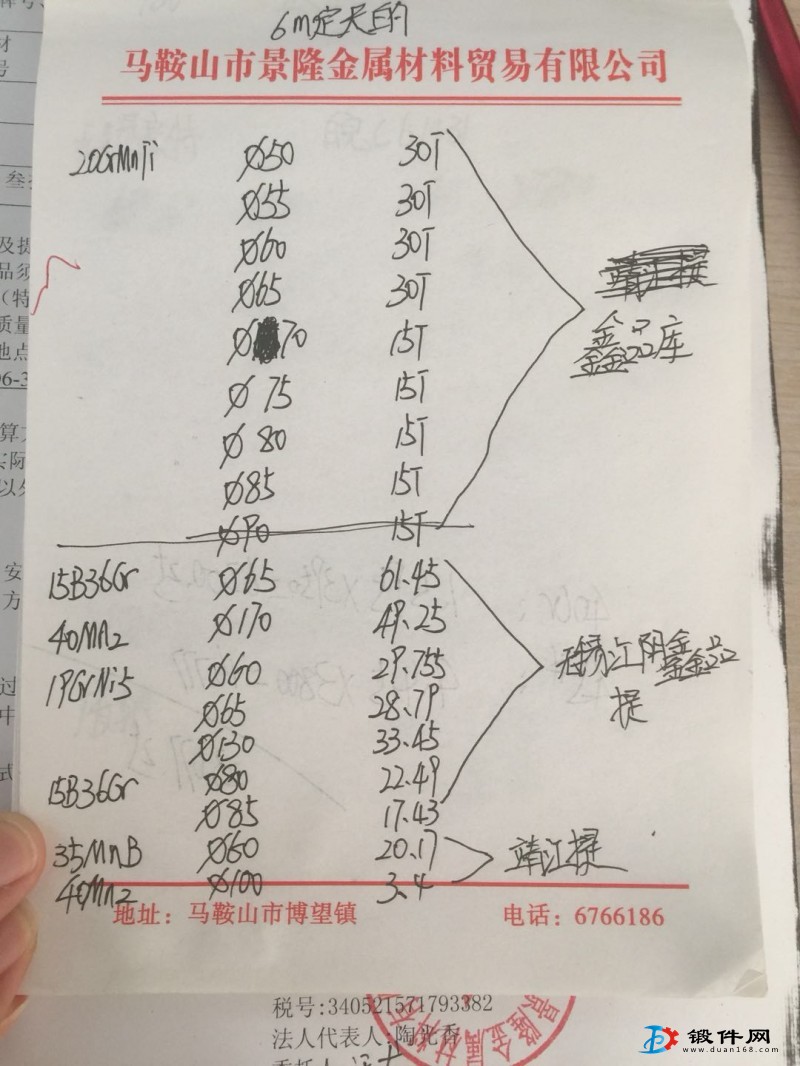 6m定尺的
马鞍山市景隆金属材料贸易有限公司
20GrMnTi ø50 30T
ø55 30T
ø60 30T
ø65 30T
靖江提
ø70 15T
鑫品库
ø75 15T
ø80 15T
ø85 15T
ø90 15T
15B36Gr ø65 61.45
40Mn2 ø170 49.25
19GrNi5 ø60 29.755
江阴鑫鑫品
ø65 28.79
提
ø130 33.45
15B36Gr ø80 22.49
ø85 17.43
35MnB ø60 20.17
靖江提
40Mn2 ø100 3.4
地址：马鞍山市博望镇 电话：6766186
税号:340521571793382
法人代表人:陶光香
锻件网
www.duan168.com